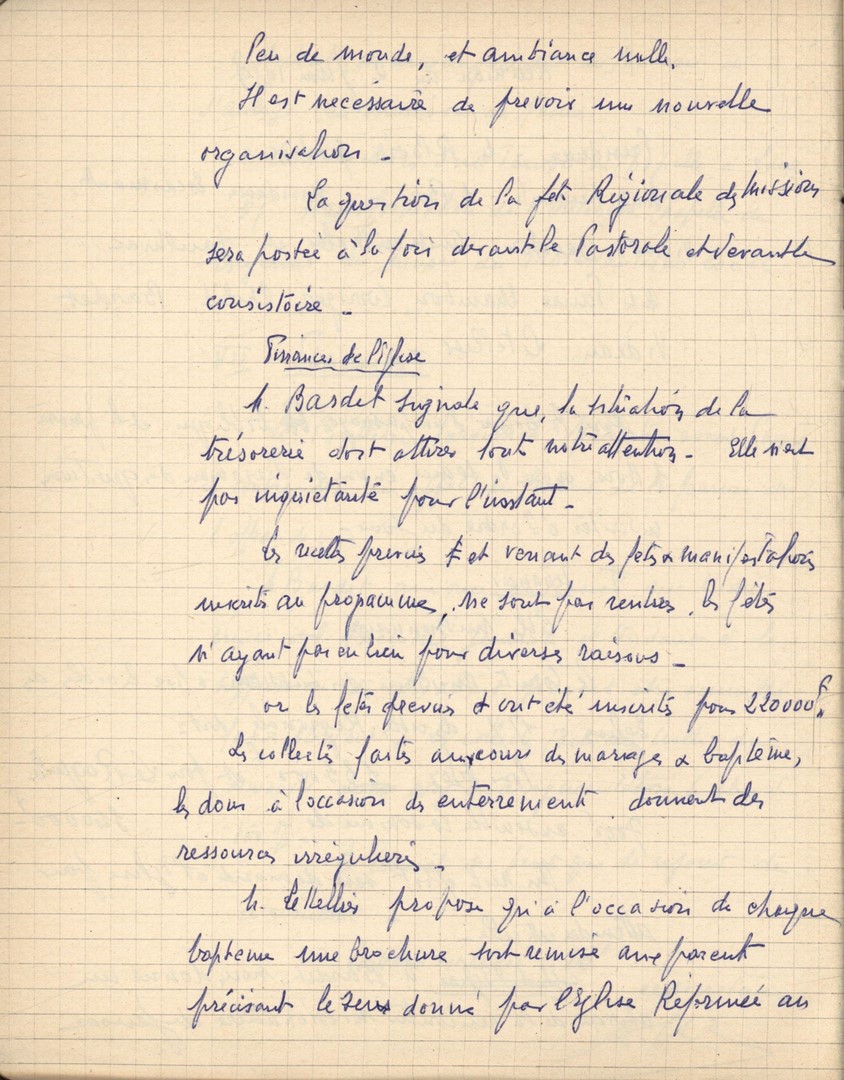 Peu de monde, et ambiance nulle.
Il est necéssaire de prevoir une nouvelle
organisation -
La question de la fete Régionale des Missions
sera postée à la fois devant le Pastorale et devant le
consistoire -
Finances de l'église
M. Bardet signale que, la situation de la
trésorerie doit attirer toute notre attention - Elle n'est
pas inquietante pour l'instant -
Les recettes prevues et venant des fetes & manifestations
inscrits au programme, ne sont pas rentrées, les fêtes
n'ayant pas eu lieu pour diverses raisons -
or les fetes prevues ont été inscrites pour 220000F.
Les collectes faites au cours des mariages & baptême,
les dons à l'occasion des enterrements donnent des
ressources irrégulieres -
M. Letellier propose qu'à l'occasion de chaque
bapteme une brochure soit remise aux parents
précisant le sens donné par l'Eglise Réformée au